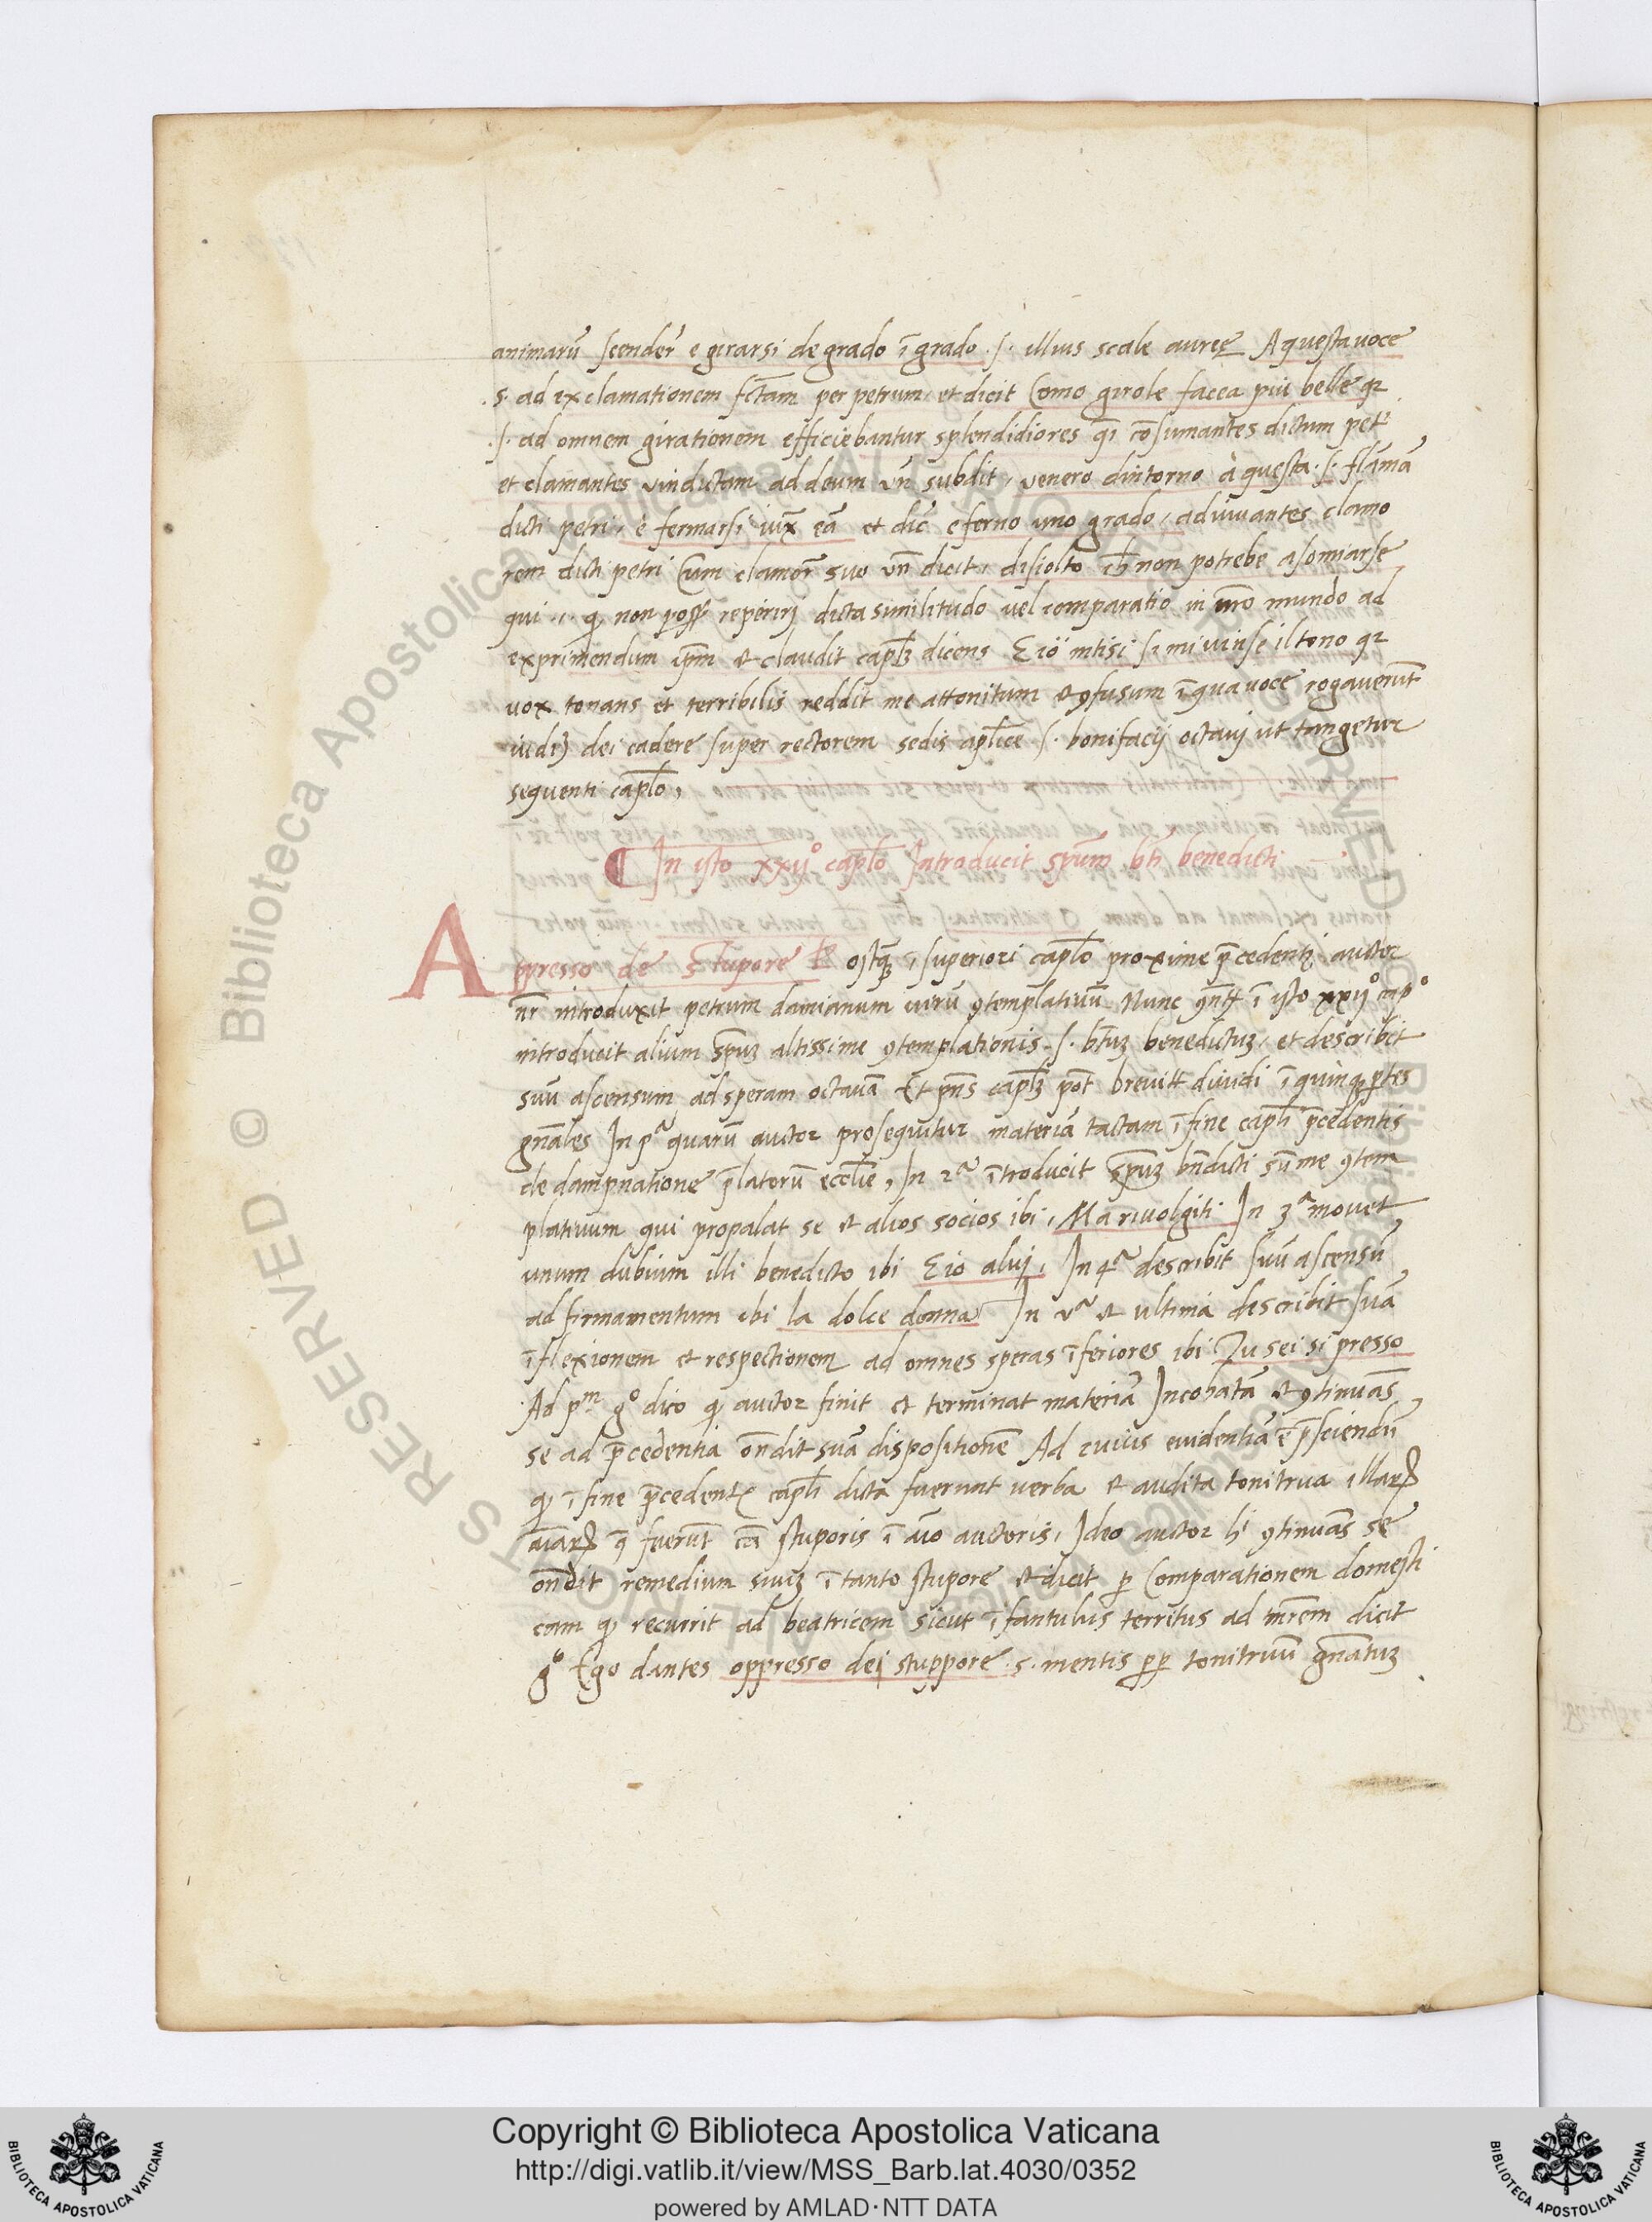 animarū scender̃ e girarsi de grado ĩ grado .s. illius scale auree A questa voce
.s. ad exclamationem fctam per petrum et dicit Como girole facea piu belle qr
.s. ad omnem girationem efficiebantur splendidiores qi cōsumantes dictum pet
et clamantes vindictam ad deum vñ subdit, venero dintorno à questa .s. flāmā
dicti petri, è fermarsi iux̃ eā et dic̃ e ferno uno grado, adiuvantes clamo
rem dicti petri cum clamor̃ suo vñ dicit, disiolto ch non potrebe asomiarse
qui, q non poss̃ reperirj dicta similitudo vel comparatio in nr̃o mundo ad
exprimendum ip̄m et claudit capl̃ʒ dicens E iò intisi si mi vinse il tono qr
vox tonans et terribilis reddit me attonitum et ꝯfusum ĩ qua voce rogaverūt
iudiʒ dei cadere super rectorem sedis apl̃ice .s. bonifacij octavj ut tangetur
sequenti capl̃o,
¶ In isto xxijº capl̃o Introducit spūm bti benedicti
Appresso de Stupore Postq̃ʒ ĩ superiori capl̃o proxime p̄cedenti auctor
nr̃ introduxit petrum damianum virū ꝯtemplativū Nunc ꝯñtr ĩ isto xxijº capº
introducit alium sp̄uʒ altissime ꝯtemplationis .s. btuʒ benedictuʒ, et describit
suū ascensum ad speram octavā Et pñs capl̃ʒ pot̃ brevitr dividi ĩ quinqʒ ptes
gñales In pª quarū auctor prosequitur materiā tactam ĩ fine capl̃i p̄cedentis
de dampnatione p̄latorū eccl̃ie, In 2ª ĩtroducit sp̄uʒ bñdicti sūme ꝯtem
plativum qui propalat se et alios socios ibi, Ma rivolgiti In 3ª movet
unum dubium illi benedicto ibi E io aluj, In 4ª describit suū ascensū
ad firmamentum ibi la dolce donna In vª et ultimā describit suā
ĩflexionem et respectionem ad omnes speras ĩferiores ibi Tu sei si presso
Ad pᵐ gº dico q auctor finit et terminat materiā Incohatā et ꝯtinuās
se ad p̄cedentia oñdit suā dispositionē Ad cuius evidentiā ē p̄sciendū
q ĩ fine p̄cedentis capl̃i dicta fuerunt verba et audita tonitrua illaꝝ
aīaꝝ q̄ fuerūt cā stuporis ĩ aīo auctoris, Ideo auctor hⁱ ꝯtinuās se
oñdit remedium suuʒ ĩ tanto stupore et dicit ꝑ Comparationem domesti
cam q recurrit ad beatricem sicut ĩfantulus territus ad mr̃em dicit
gº Ego dantes oppresso dej stuppore .s. mentis ꝓp tonitruū gñatuʒ
Copyright © Biblioteca Apostolica Vaticana
http://digi.vatlib.it/view/MSS_Barb.lat.4030/0352
powered by AMLAD·NTT DATA